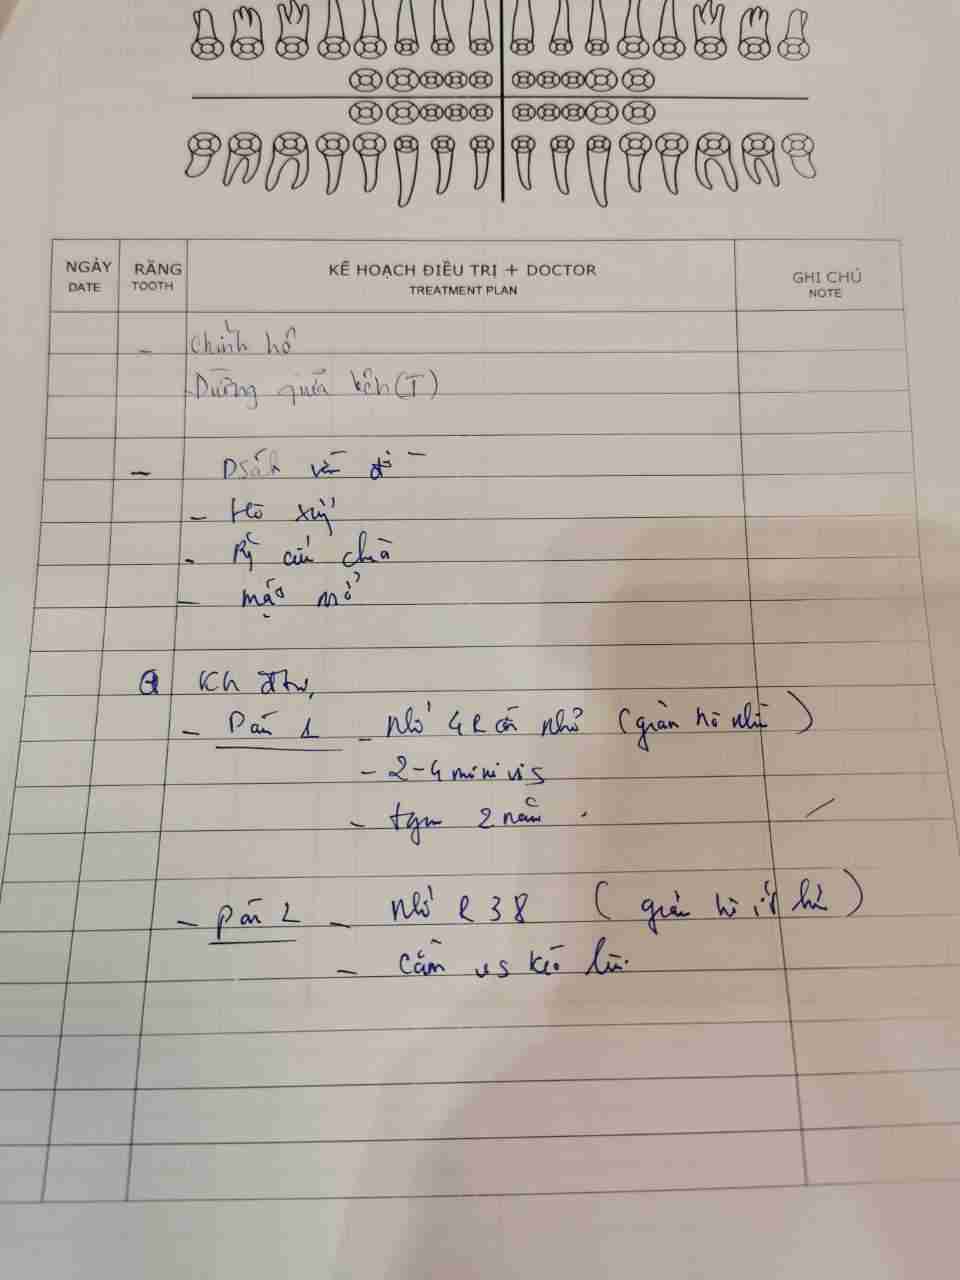 NGÀY
DATE
RĂNG
TOOTH
KẾ HOẠCH ĐIỀU TRỊ + DOCTOR
TREATMENT PLAN
GHI CHÚ
NOTE
- Chỉnh hô
- Đường giữa lệch (T)
- Dsách vấn đề
- Hô xương
- R cửa chìa
- mặt
Kh đtrị
- Pán 1 - Nhổ 4R cối nhỏ (giảm hô nhiều)
- 2-4 minivis
- tgian 2 năm
- pán 2 - Nhổ R38 (giảm hô ít hơn)
- Cắm vis kéo lùi.